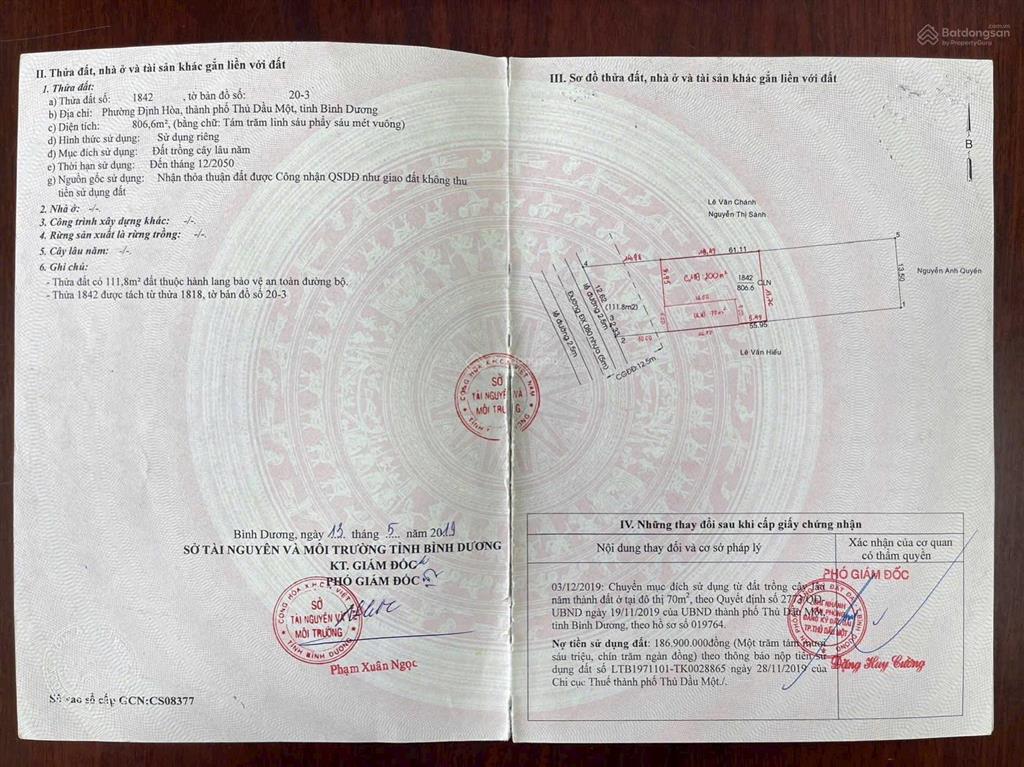 Batdongsan
.com.vn
by PropertyGuru
II. Thửa đất, nhà ở và tài sản khác gắn liền với đất
1. Thửa đất:
a) Thửa đất số: 1842 , tờ bản đồ số: 20-3
b) Địa chỉ: Phường Định Hòa, thành phố Thủ Dầu Một, tỉnh Bình Dương
c) Diện tích: 806,6m², (bằng chữ: Tám trăm linh sáu phẩy sáu mét vuông)
d) Hình thức sử dụng: Sử dụng riêng
đ) Mục đích sử dụng: Đất trồng cây lâu năm
e) Thời hạn sử dụng: Đến tháng 12/2050
g) Nguồn gốc sử dụng: Nhận thỏa thuận đất được Công nhận QSDĐ như giao đất không thu
tiền sử dụng đất
2. Nhà ở: -/-.
3. Công trình xây dựng khác: -/-.
4. Rừng sản xuất là rừng trồng: -/-.
5. Cây lâu năm: -/-.
6. Ghi chú:
- Thửa đất có 111,8m² đất thuộc hành lang bảo vệ an toàn đường bộ.
- Thửa 1842 được tách từ thửa 1818, tờ bản đồ số 20-3
SỞ
TÀI NGUYÊN VÀ
MÔI TRƯỜNG
Bình Dương, ngày 13 tháng 5 năm 2019
SỞ TÀI NGUYÊN VÀ MÔI TRƯỜNG TỈNH BÌNH DƯƠNG
KT. GIÁM ĐỐC
PHÓ GIÁM ĐỐC
SỞ
TÀI NGUYÊN VÀ
MÔI TRƯỜNG
TỈNH BÌNH DƯƠNG
Phạm Xuân Ngọc
Số vào sổ cấp GCN:CS08377
III. Sơ đồ thửa đất, nhà ở và tài sản khác gắn liền với đất
B
Lê Văn Chánh
Nguyễn Thị Sành
61.11
5
4
13.50
Nguyễn Anh Quyền
1842
806.6
CLN
200m²
70m²
12.62
(111.8m2)
2.33
3
2
1
55.95
Lê Văn Hiếu
lộ đường 2.5m
Đường ĐX 090 nhựa (5m)
lộ đường 2.5m
CGĐĐ:12.5m
IV. Những thay đổi sau khi cấp giấy chứng nhận
Nội dung thay đổi và cơ sở pháp lý
Xác nhận của cơ quan
có thẩm quyền
03/12/2019: Chuyển mục đích sử dụng từ đất trồng cây lâu
năm thành đất ở tại đô thị 70m², theo Quyết định số 2773/QĐ-
UBND ngày 19/11/2019 của UBND thành phố Thủ Dầu Một,
tỉnh Bình Dương, theo hồ sơ số 019764.
Nợ tiền sử dụng đất: 186.900.000đồng (Một trăm tám mươi
sáu triệu, chín trăm ngàn đồng) theo thông báo nộp tiền sử
dụng đất số LTB1971101-TK0028865 ngày 28/11/2019 của
Chi cục Thuế thành phố Thủ Dầu Một./.
PHÓ GIÁM ĐỐC
CHI NHÁNH
VĂN PHÒNG
ĐĂNG KÝ ĐẤT ĐAI
TP.THỦ DẦU MỘT
Đặng Huy Cường